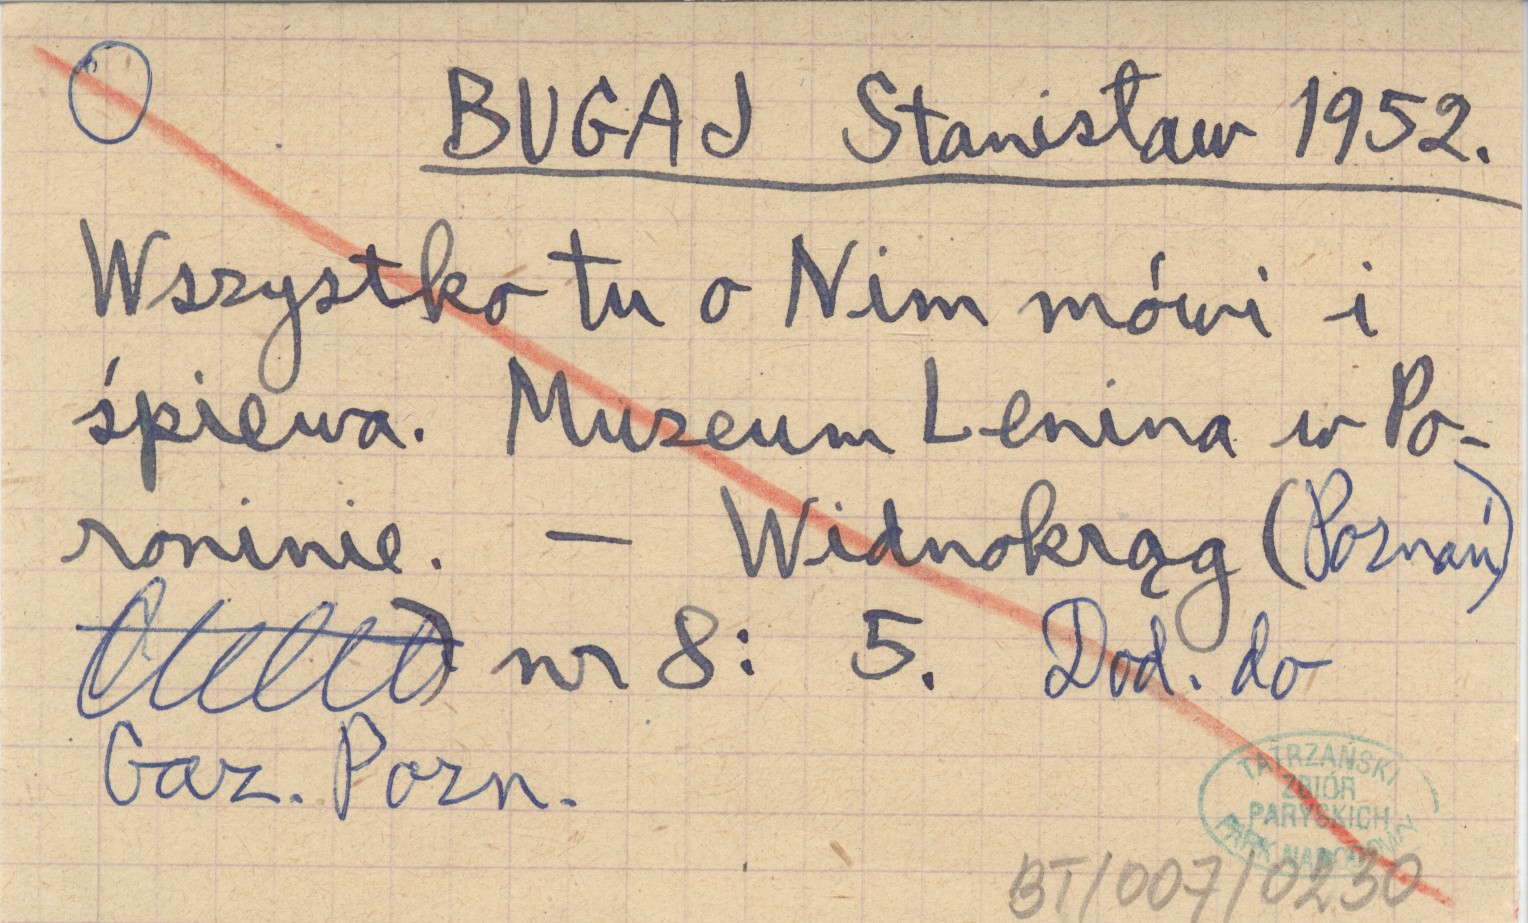 BUGAJ Stanisław 1952.
Wszystko tu o Nim mówi i
śpiewa. Muzeum Lenina w Po-
roninie. — Widnokrąg (Poznań)
nr 8: 5. Dod. do
Gaz. Pozn.
TATRZAŃSKI
ZBIÓR
PARYSKICH
PARK NARODOWY
BT/007/0230